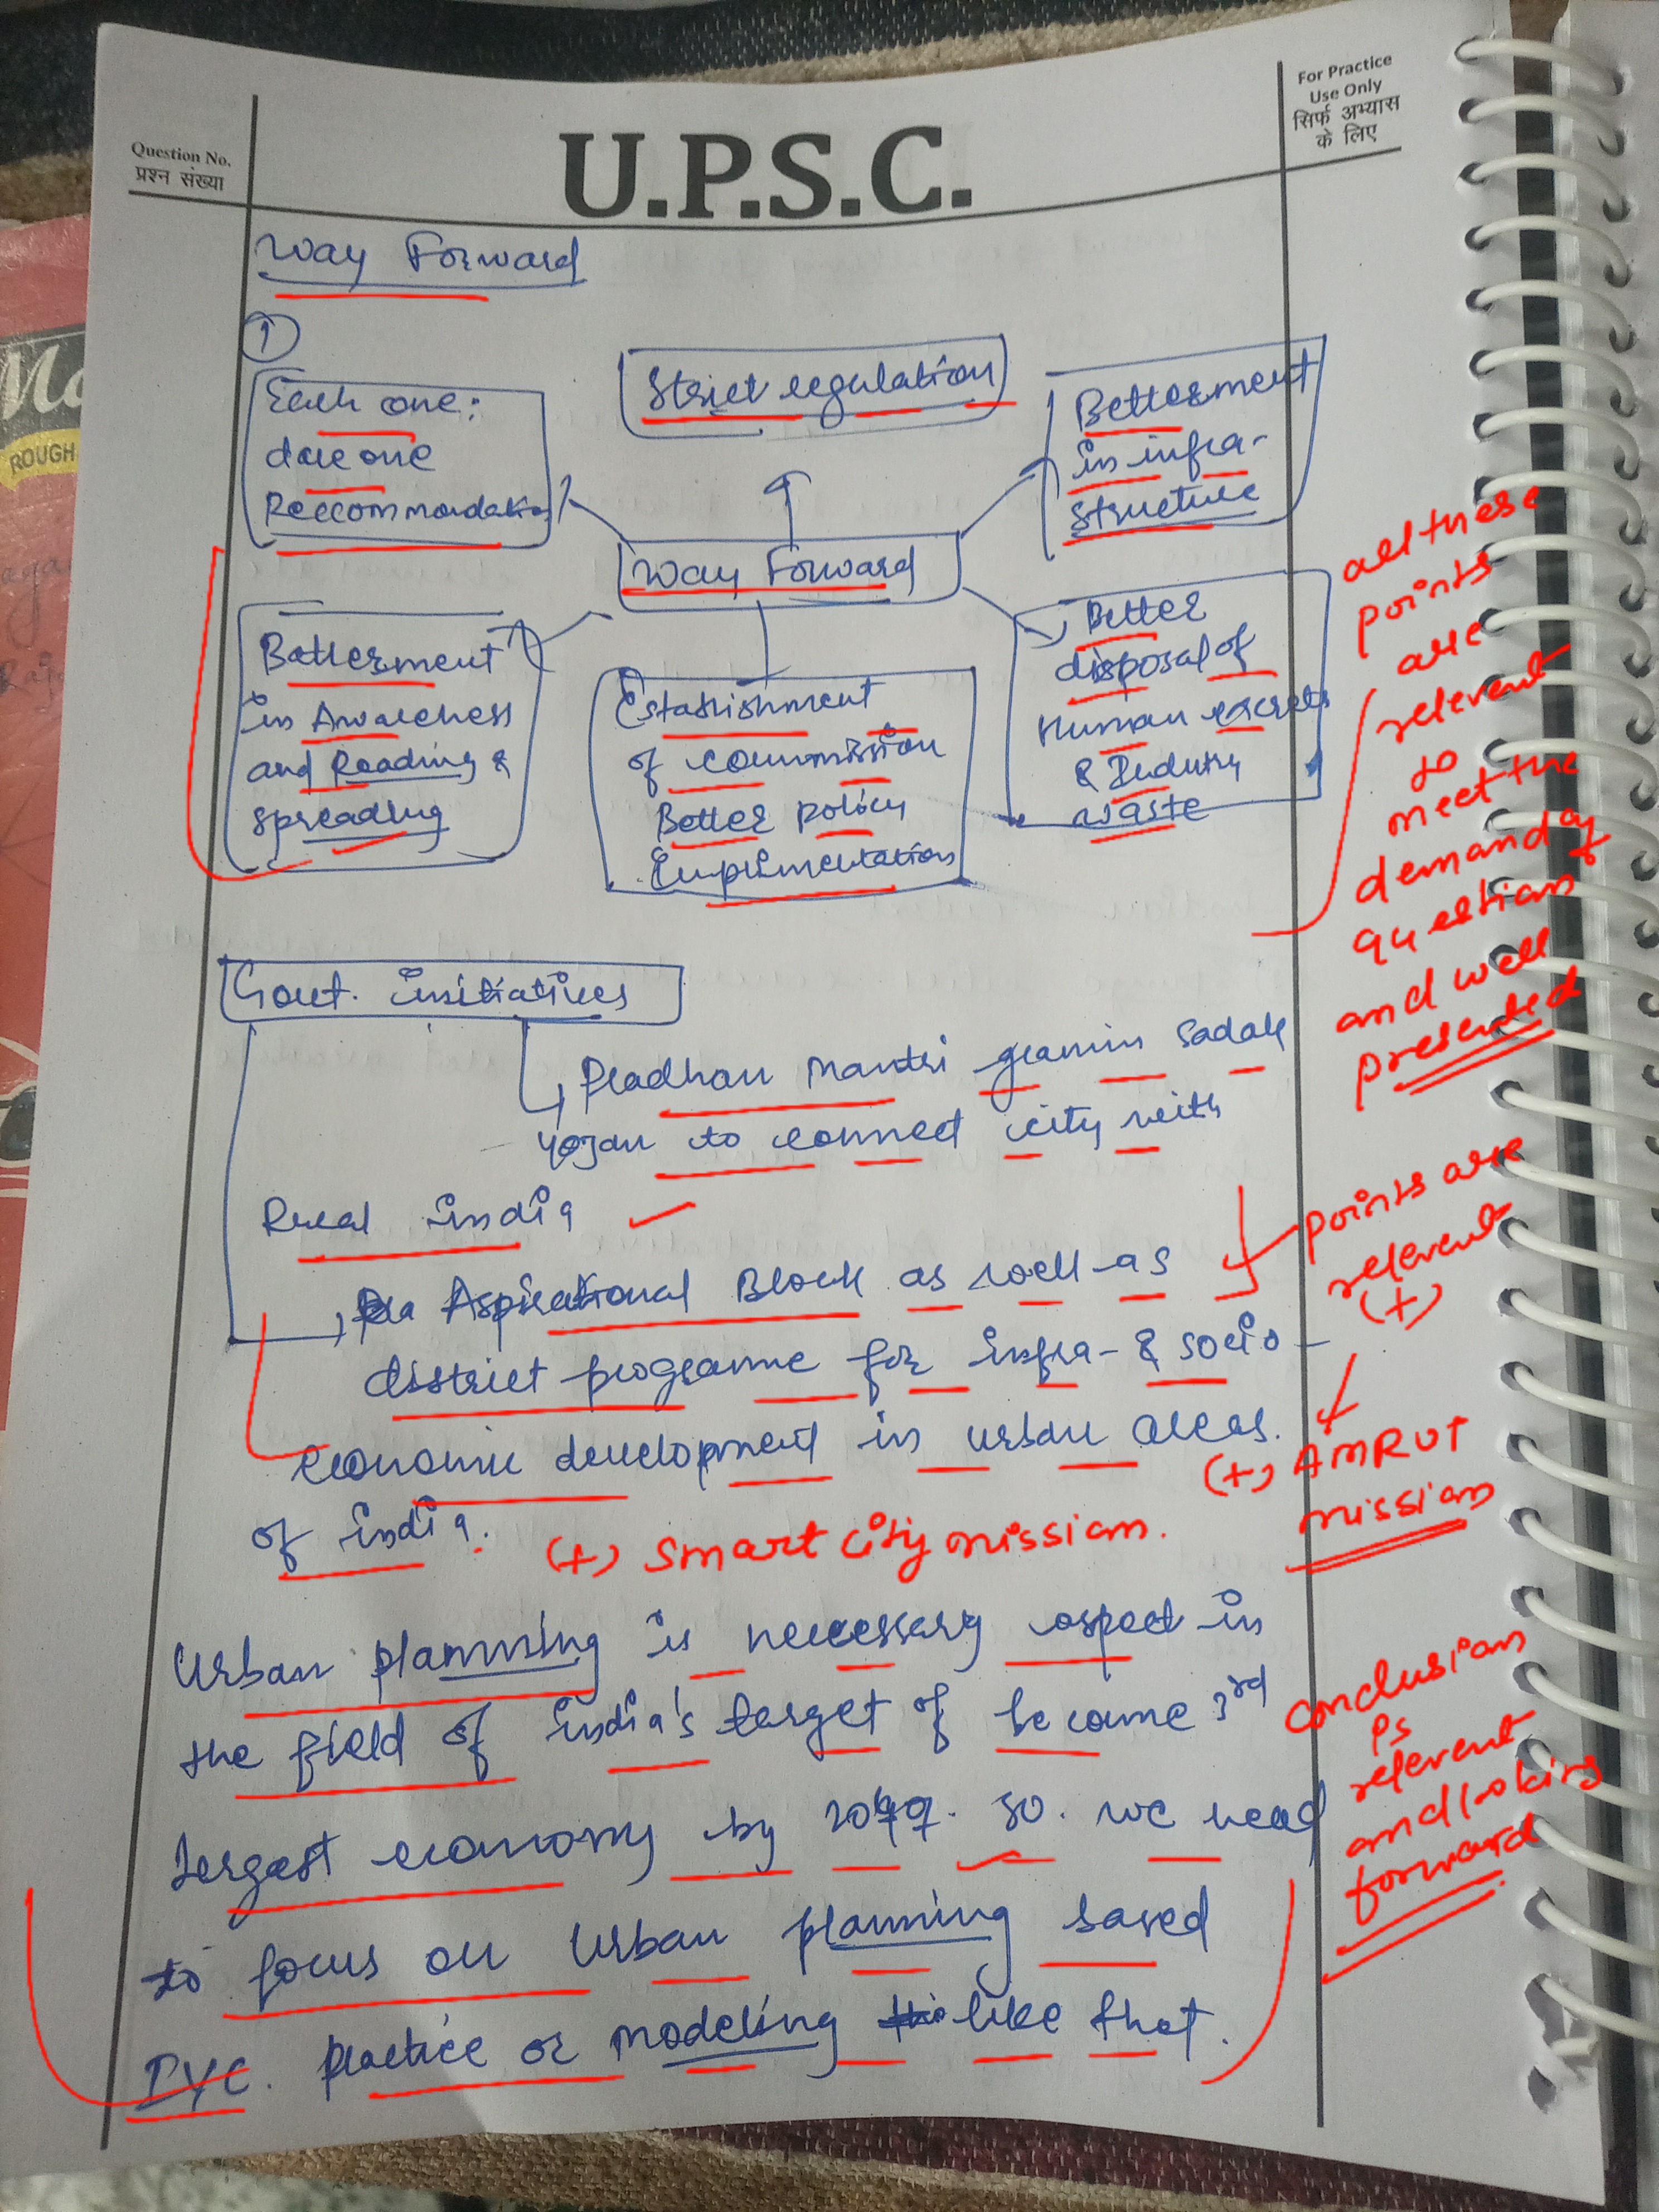 Question No.
प्रश्न संख्या
U.P.S.C.
For Practice
Use Only
सिर्फ अभ्यास
के लिए
Way Forward
1
Each one:
dare one
Reccommordation
Strict regulation
Betterment
in infra-
structure
Way Forward
Batterment
in Awareness
and Reading &
spreading
Establishment
of commission
Better policy
Implimentation
Better
disposal of
Human excrets
& Industry
waste
all these
points
are
relevent
to
meet the
demand of
question
and well
presented
Govt. initiatives
Pradhan Mantri gramin Sadak
yojan to connect city with
Rural india
Aspirational Block as well as
district programe for infra- & socio-
economic development in urban areas.
of india.
points are
relevent
(+)
(+) AMRUT
mission
(+) Smart City mission.
Urban planning is necessary aspect in
the field of india's target of become 3rd
largest economy by So. we need
to focus on Urban planning based
IVC. practice or modeling like that.
conclusion
is
relevent
and looking
forward
ROUGH